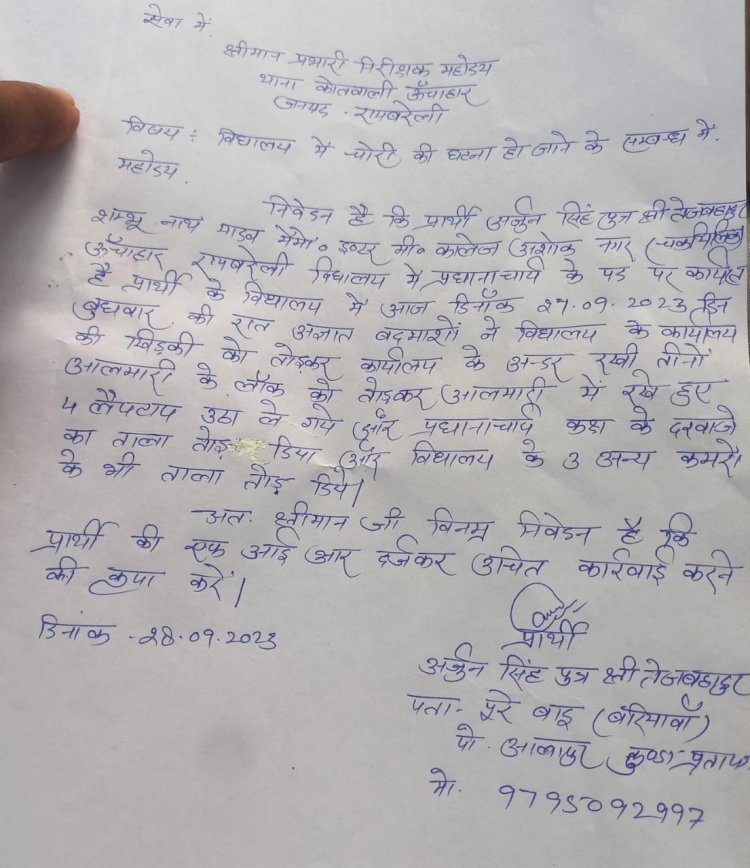 सेवा में.
श्रीमान प्रभारी निरीक्षक महोदय
थाना कोतवाली ऊँचाहार
जनपद - रायबरेली
विषय : विद्यालय में चोरी की घटना हो जाने के सम्बन्ध में.
महोदय.
निवेदन है कि प्रार्थी अर्जुन सिंह पुत्र श्री तेजबहादुर
शम्भू नाथ यादव मेमो० इण्टर मी० कालेज अशोक नगर
ऊँचाहार रायबरेली विद्यालय में प्रधानाचार्य के पद पर
है प्रार्थी के विद्यालय में आज दिनाँक 27.09.2023 दिन
बुधवार की रात अज्ञात बदमाशों ने विद्यालय के कार्यालय
की खिड़की को तोड़कर कार्यालय के अन्दर रखी तीनों
आलमारी के लॉक को तोड़कर आलमारी में रखे हुए
4 लैपटाप उठा ले गये और प्रधानाचार्य कक्ष के दरवाजे
का ताला तोड़ दिया और विद्यालय के 3 अन्य कमरों
के भी ताला तोड़ दिये।
अतः श्रीमान जी विनम्र निवेदन है कि
प्रार्थी की एफ आई आर दर्जकर उचित कार्रवाई करने
की कृपा करें।
दिनांक - 28.09.2023
प्रार्थी
अर्जुन सिंह पुत्र श्री तेजबहादुर
पता - पूरे बाबू (बरियावाँ)
पो. आलापुर कुण्डा-प्रताप
मो. 9795092997